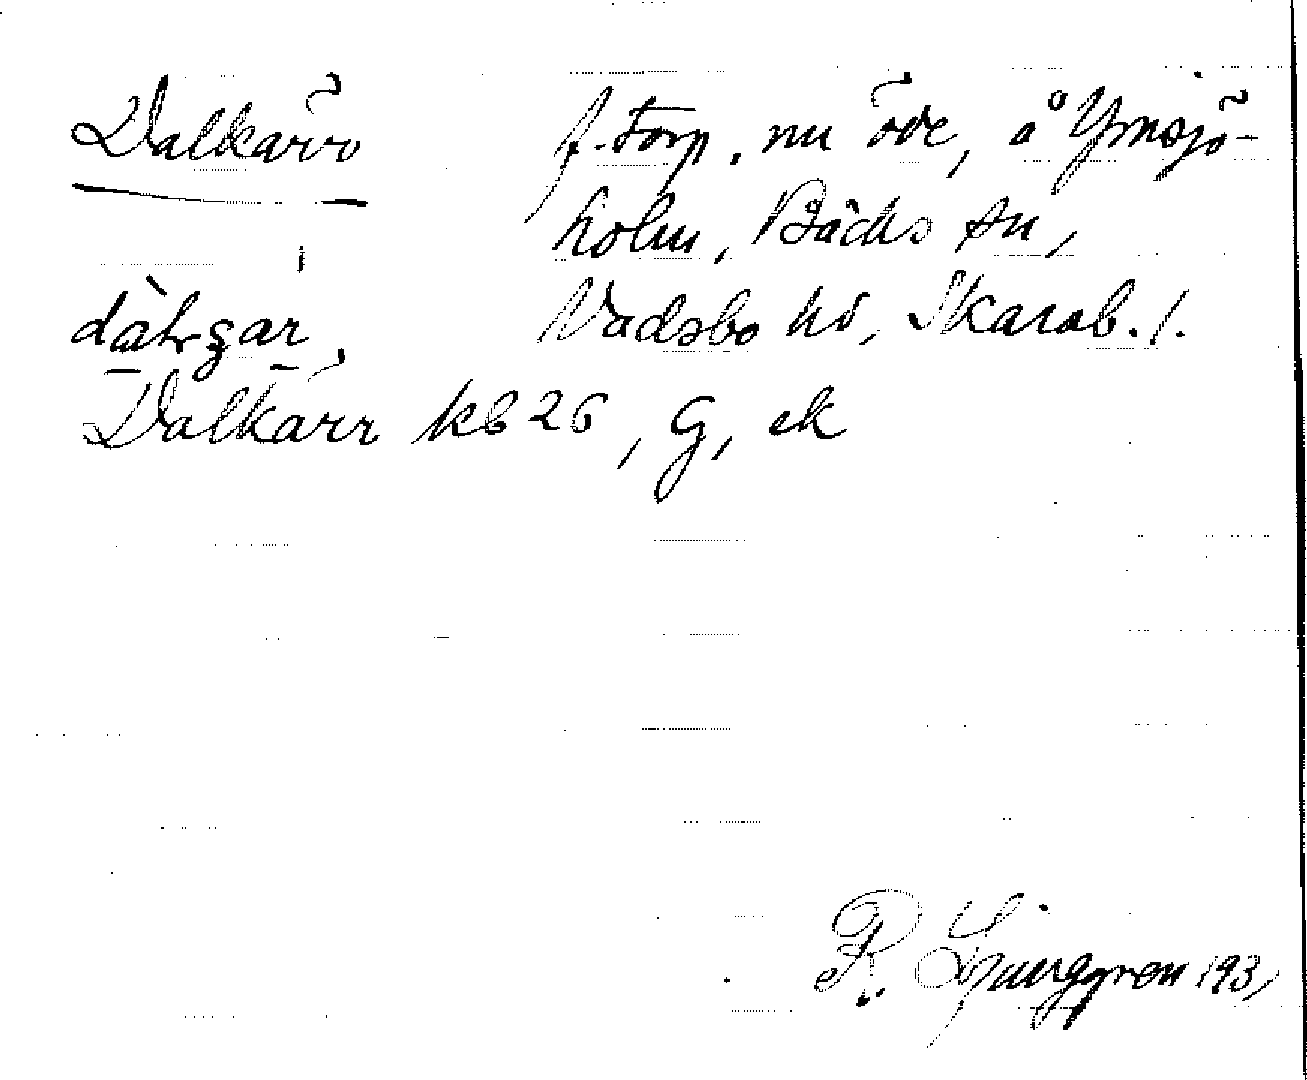 Dalkärr
f. torp, nu öde, å Ymsjö-
holm, Bäcks sn,
Vadsbo hd, Skarab. l.
Dalkärr kb 26, G, ek
R. Ljunggren 1931